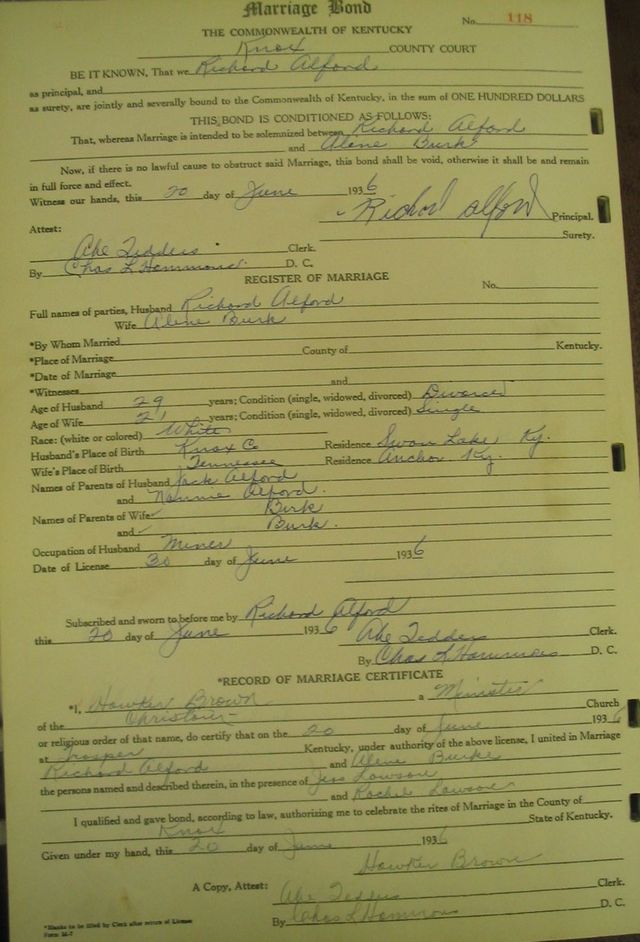 Marriage Bond
No. 118
THE COMMONWEALTH OF KENTUCKY
Knox COUNTY COURT
BE IT KNOWN, That we Richard Alford
as principal, and
as surety, are jointly and severally bound to the Commonwealth of Kentucky, in the sum of ONE HUNDRED DOLLARS
THIS BOND IS CONDITIONED AS FOLLOWS:
That, whereas Marriage is intended to be solemnized between Richard Alford
and Alene Burk
Now, if there is no lawful cause to obstruct said Marriage, this bond shall be void, otherwise it shall be and remain
in full force and effect.
Witness our hands, this 20 day of June 1936
Richard Alford Principal.
Attest: Surety.
Abe Tedders Clerk.
By Chas L Hammons D. C.
REGISTER OF MARRIAGE
No.
Full names of parties, Husband Richard Alford
Wife Alene Burk
*By Whom Married
*Place of Marriage County of Kentucky.
*Date of Marriage
*Witnesses and
Age of Husband 29 years; Condition (single, widowed, divorced) Divorced
Age of Wife 21 years; Condition (single, widowed, divorced) Single
Race: (white or colored) White
Husband's Place of Birth Knox Co Residence Swan Lake Ky.
Wife's Place of Birth Tennessee Residence Anchor Ky.
Names of Parents of Husband Jack Alford
and Nannie Alford.
Names of Parents of Wife Burk
and Burk.
Occupation of Husband Miner
Date of License 30 day of June 1936
Subscribed and sworn to before me by Richard Alford
this 20 day of June 1936 Abe Tedders Clerk.
By Chas L Hammons D. C.
*RECORD OF MARRIAGE CERTIFICATE
*I, Hawker Brown a Minister
of the Christian Church
or religious order of that name, do certify that on the 20 day of June 1936
at Trosper Kentucky, under authority of the above license, I united in Marriage
Richard Alford and Alene Burke
the persons named and described therein, in the presence of Jess Lawson
and Rachel Lawson
I qualified and gave bond, according to law, authorizing me to celebrate the rites of Marriage in the County of
Knox State of Kentucky.
Given under my hand, this 20 day of June 1936
Hawker Brown
A Copy, Attest: Abe Tedders Clerk.
By Chas L Hammons D. C.
*Blanks to be filled by Clerk after return of License
Form M-7